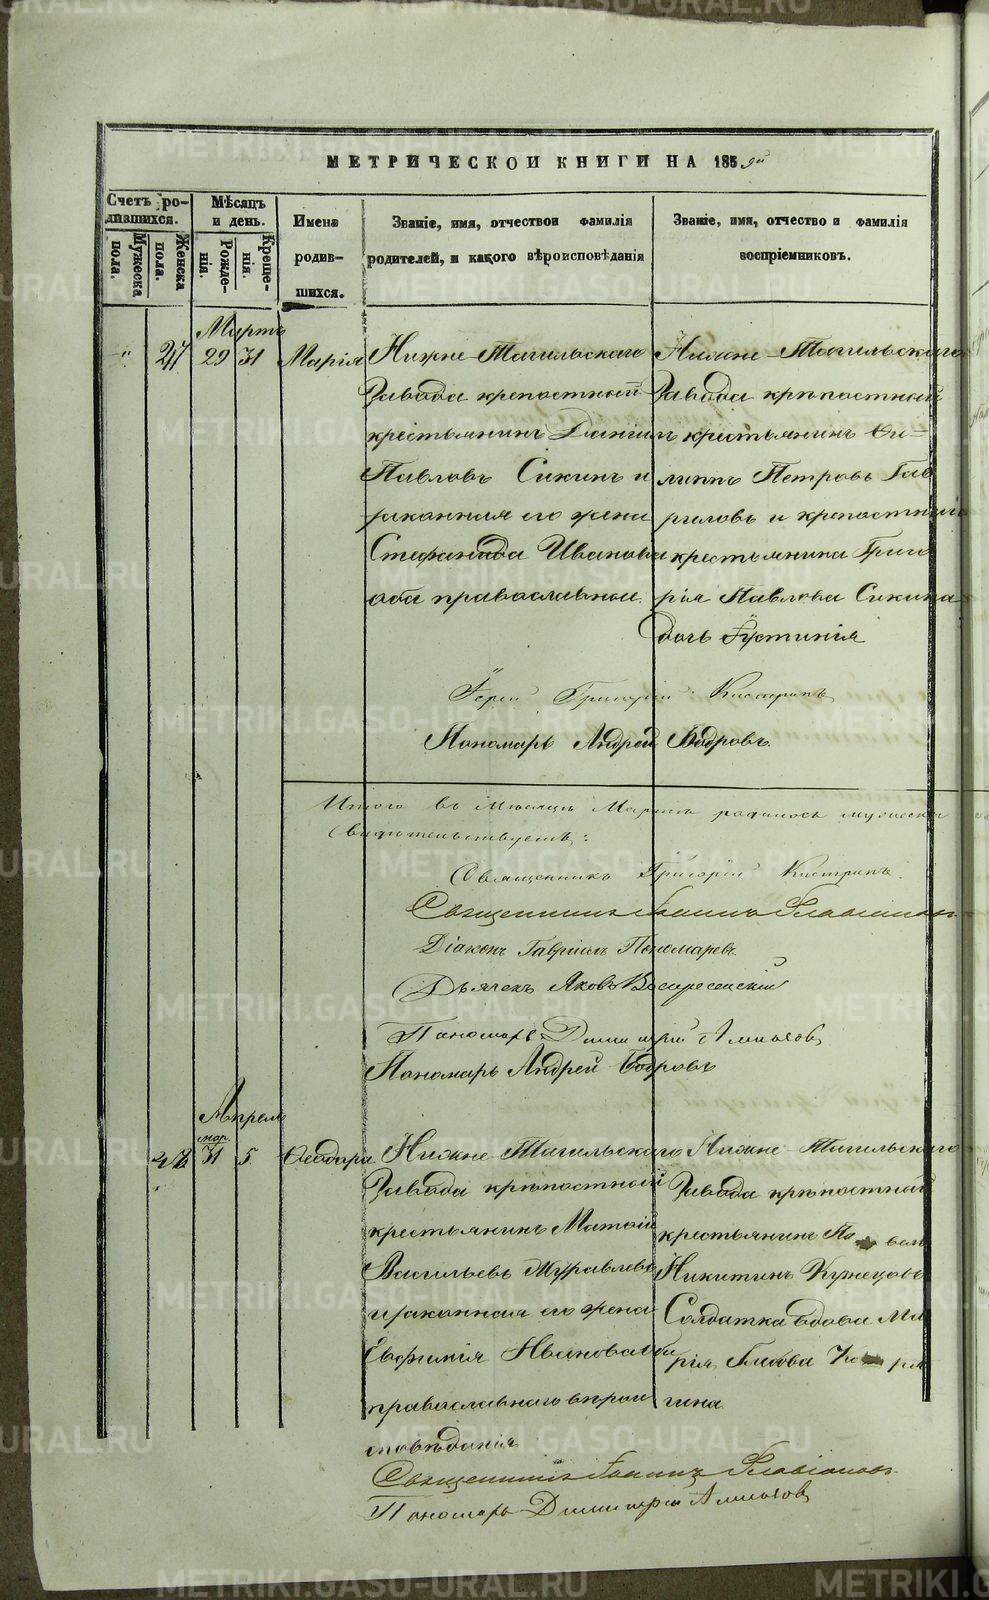 МЕТРИЧЕСКОЙ КНИГИ НА 185 года
Счетъ родившихся.
Мужеска пола.
Женска пола.
Мѣсяцъ и день.
Рожденія.
Крещенія.
Имена родившихся.
Званіе, имя, отчество и фамилія родителей, и какого вѣроисповѣданія
Званіе, имя, отчество и фамилія воспріемниковъ.
Мартъ
29 31 Марія
Нижне-Тагильскаго
Завода крепостный
крестьянинъ Даніилъ
Павловъ Сикинъ и
законная его жена
Стефанида Иванова
оба православные.
Нижне-Тагильскаго
Завода крѣпостный
крестьянинъ Фи-
липпъ Петровъ Гав
риловъ и крепостный
крестьянина Григо
рія Павлова Сикина
дочь Іустинія
Іерей Григорій
Пономарь Андрей Бодровъ.
Итого въ мѣсяцѣ Мартѣ родилось мужеска
Свидѣтельствуетъ:
Священникъ Григорій
Священникъ Іоаннъ Флавіановъ
Діаконъ Гавріилъ Пономаревъ.
Дьячекъ Яковъ Воскресенскій
Пономарь Димитрій
Пономарь Андрей Бодровъ
Апрель
мар.
31 5 Ѳеодора
Нижне-Тагильскаго
Завода крѣпостной
крестьянинъ Матѳій
Васильевъ Муравлевъ
и законная его жена
Евфимія Иванова оба
православнаго вѣрои
сповѣданія
Нижне-Тагильскаго
Завода крѣпостный
крестьянинъ Павелъ
Никитинъ Кузнецовъ
Солдатка вдова Ма
рія Глебова
гина
Священникъ Іоаннъ Флавіановъ
Пономарь Димитрій
METRIKI.GASO-URAL.RU